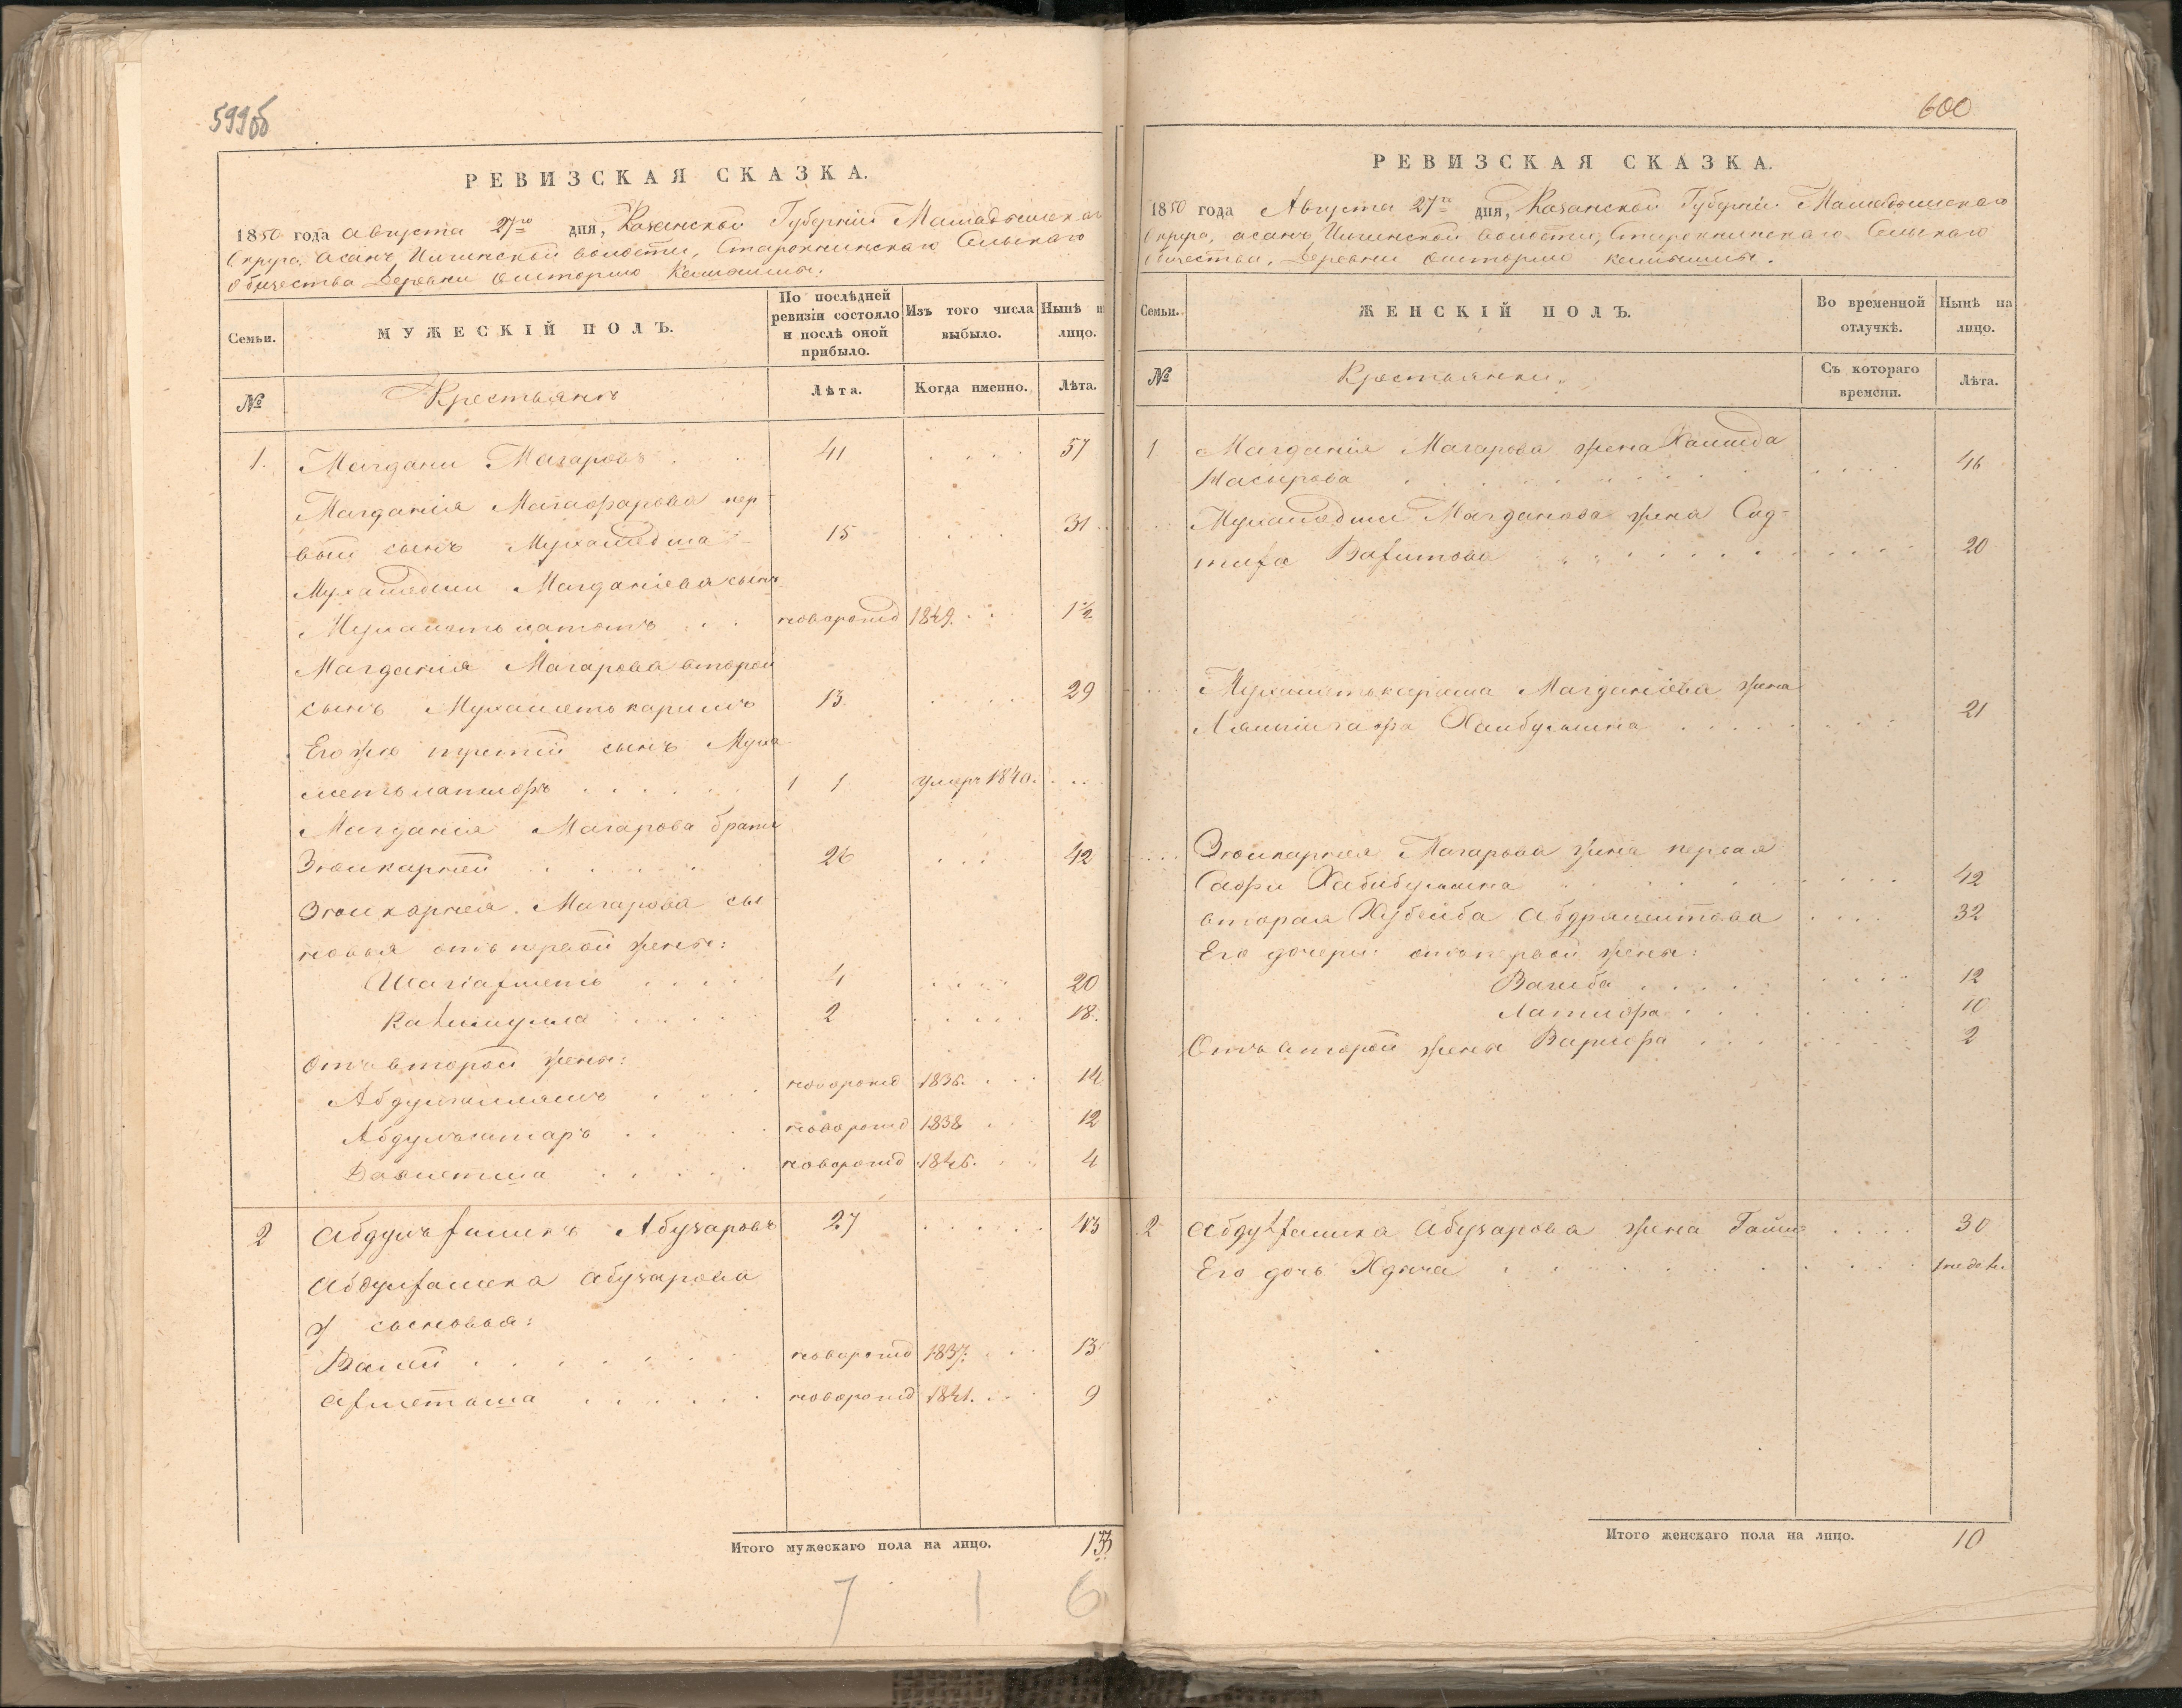 599об
РЕВИЗСКАЯ СКАЗКА.
1850 года Августа 27го дня, Казанской Губернии Мамадышскаго
Округа Асанъ Илгинской волости, Старокнинскаго Сельскаго
общества Деревни
Семьи.
МУЖЕСКІЙ ПОЛЪ.
По послѣдней ревизіи состояло и послѣ оной прибыло.
Изъ того числа выбыло.
Нынѣ н лицо.
№
Крестьянъ
Лѣта.
Когда именно.
Лѣта.
1. Магдани Магаровъ 41 57
Магданія Магафарова пер-
вый сынъ Мухамедша 15 31
Мухамедши Магданіева сынъ
новорожд 1849. 1½
Магданія Магарова второй
сынъ Мухаметъ каримъ 13 29
Его же третій сынъ Муха
метълатифъ 1 умеръ 1840.
Магданія Магарова братъ
Зюлкарней 26 42
Зюлкарнея Магарова сы
новья отъ первой жены:
Шагіахметъ 4 20
Калимулла 2 18.
Отъ второй жены:
новорожд 1836. 14
Абдулъсатаръ новорожд 1838 12
Давлетша новорожд 1846. 4
2 Абдулъ Абузаровъ 27 43
Абузарова
сыновья:
Валей новорожд 1837. 13
новорожд 1841. 9
Итого мужескаго пола на лицо. 13
7 1 6
600
РЕВИЗСКАЯ СКАЗКА.
1850 года Августа 27го дня, Казанской Губерніи Мамадышскаго
Округа, Асанъ Илгинской волости, Старокнинскаго Сельскаго
Общества, Деревни
Семьи.
ЖЕНСКІЙ ПОЛЪ.
Во временной отлучкѣ.
Нынѣ на лицо.
№
Крестьянки.
Съ котораго времени.
Лѣта.
1 Магданія Магарова жена Халида
Насырова 46
Мухамедши Магданова жена Сад-
20
Мухаметъкарима Магданіева жена
Хаибуллина 21
Зюлкарнея Магарова жена первая
Сафи Хабибуллина 42
вторая Хубейба 32
Его дочери отъ первой жены:
Вагиба 12
Латифа 10
Отъ второй жены Варифа 2
2 Абузарова жена 30
Его дочь
Итого женскаго пола на лицо. 10